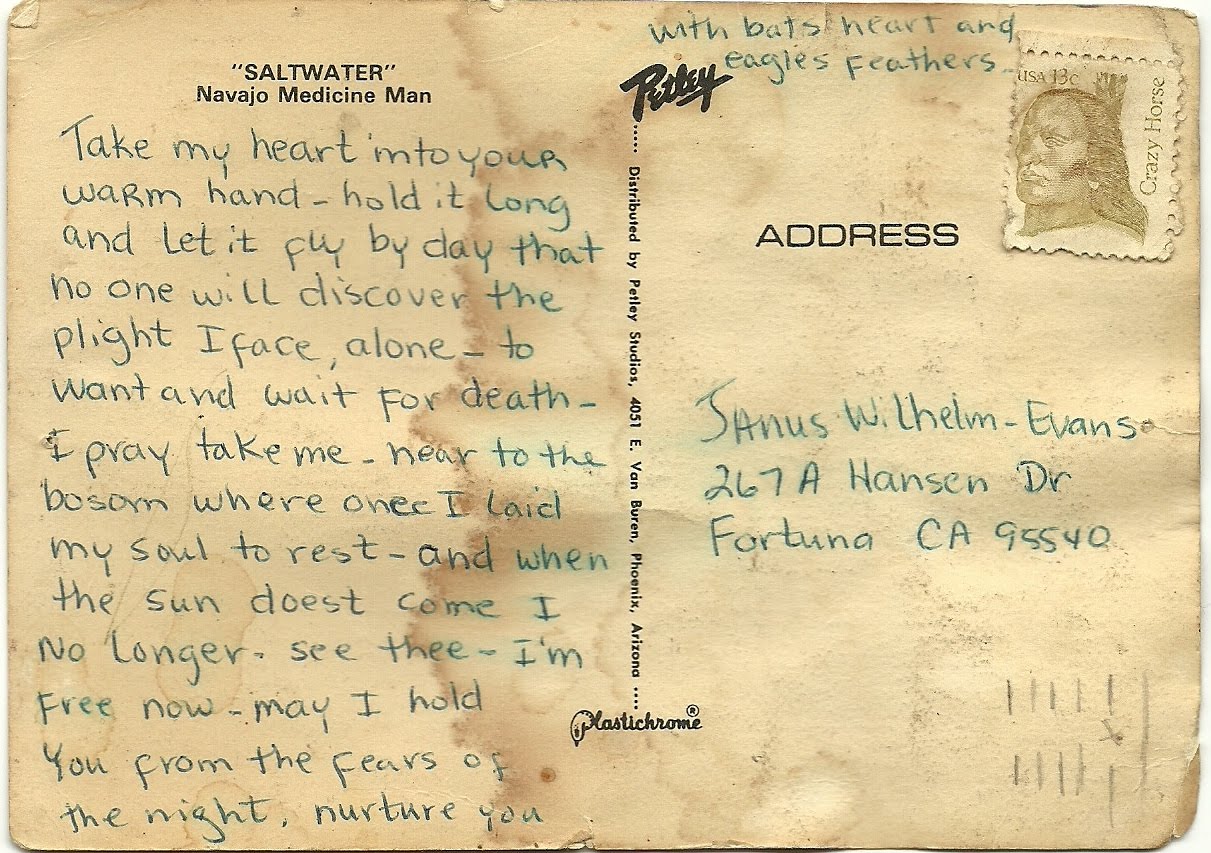 "SALTWATER"
Navajo Medicine Man
Take my heart into your
warm hand - hold it long
and let it fly by day that
no one will discover the
plight I face, alone - to
want and wait for death -
I pray take me - near to the
bosom where once I laid
my soul to rest - and when
the sun doest come I
No longer - see thee - I'm
free now - may I hold
You from the fears of
the night, nurture you
with bats heart and
eagles feathers -
Petley
..... Distributed by Petley Studios, 4051 E. Van Buren, Phoenix, Arizona .....
Plastichrome®
USA 13c
Crazy Horse
ADDRESS
JAnus Wilhelm-Evans
267 A Hansen Dr
Fortuna CA 95540